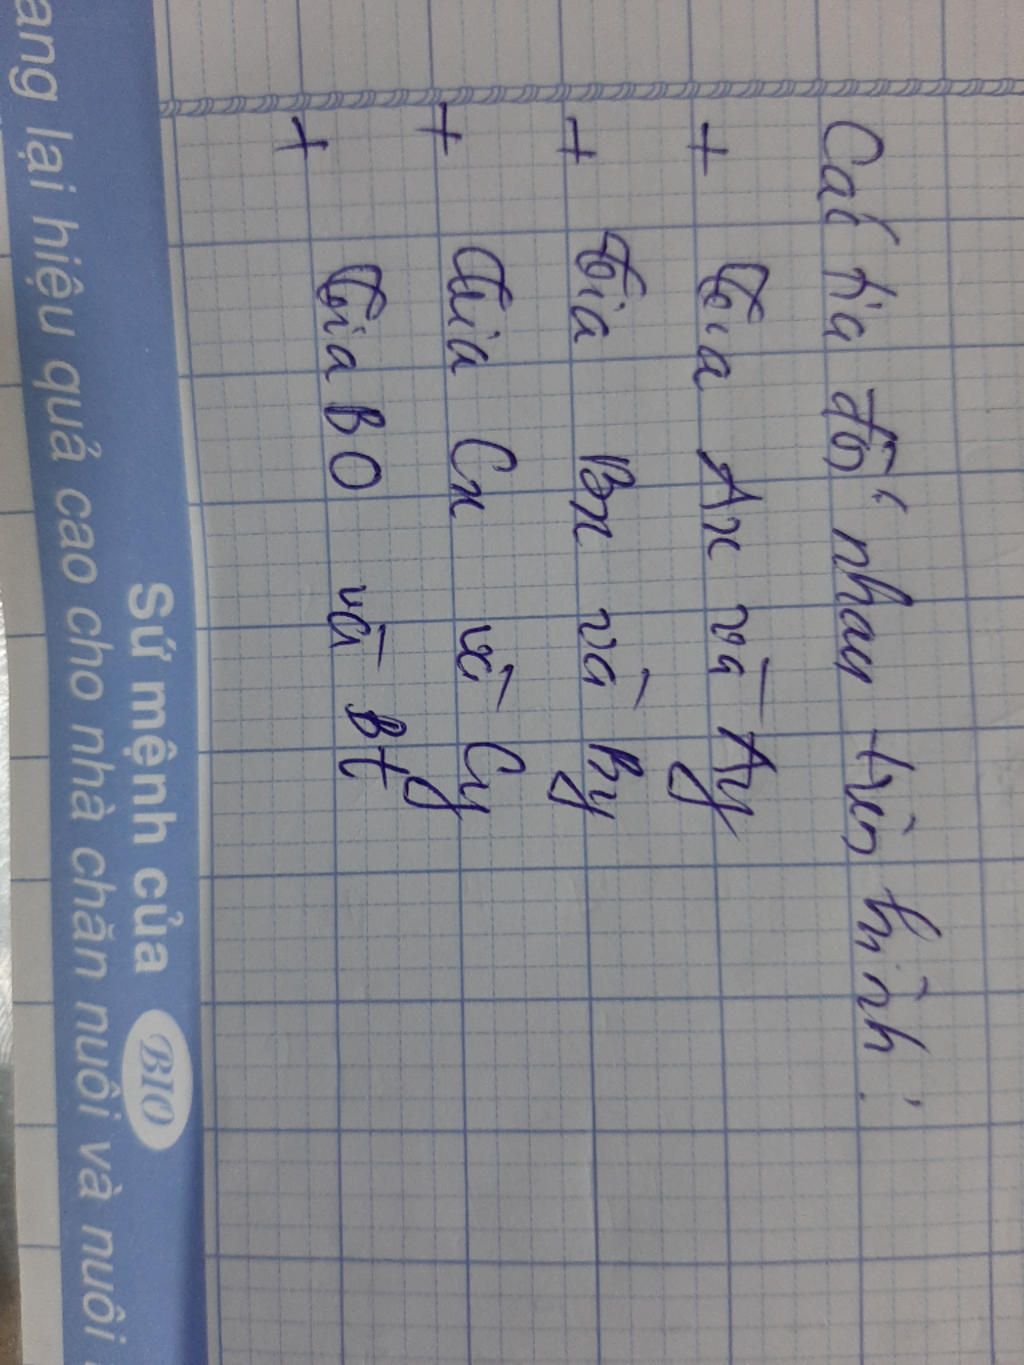 Các tia đối nhau trên hình:
+ Tia Ax và Ay
+ Tia Bx và By
+ Tia Cx và Cy
+ Tia BO và Bt
Sứ mệnh của BIO
ang lại hiệu quả cao cho nhà chăn nuôi và nuôi